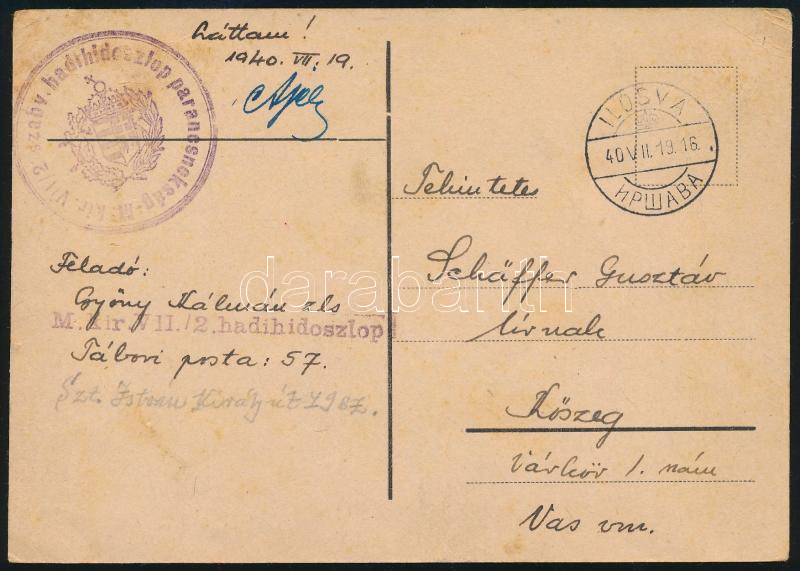 Láttam!
1940. VII. 19.
szaby. hadihidoszlop parancsnokság M. kir. VII/2
ILOSVA
40 VII. 19. 16.
ИРШАВА
Tekintetes
Schäffer Gusztáv
Úrnak
Kőszeg
Várkör 1. szám
Vas vm.
Feladó:
Gyöny Kálmán zls
M. kir VII./2. hadihidoszlop
Tábori posta: 57.
Szt. Istvan Király út
darabanth